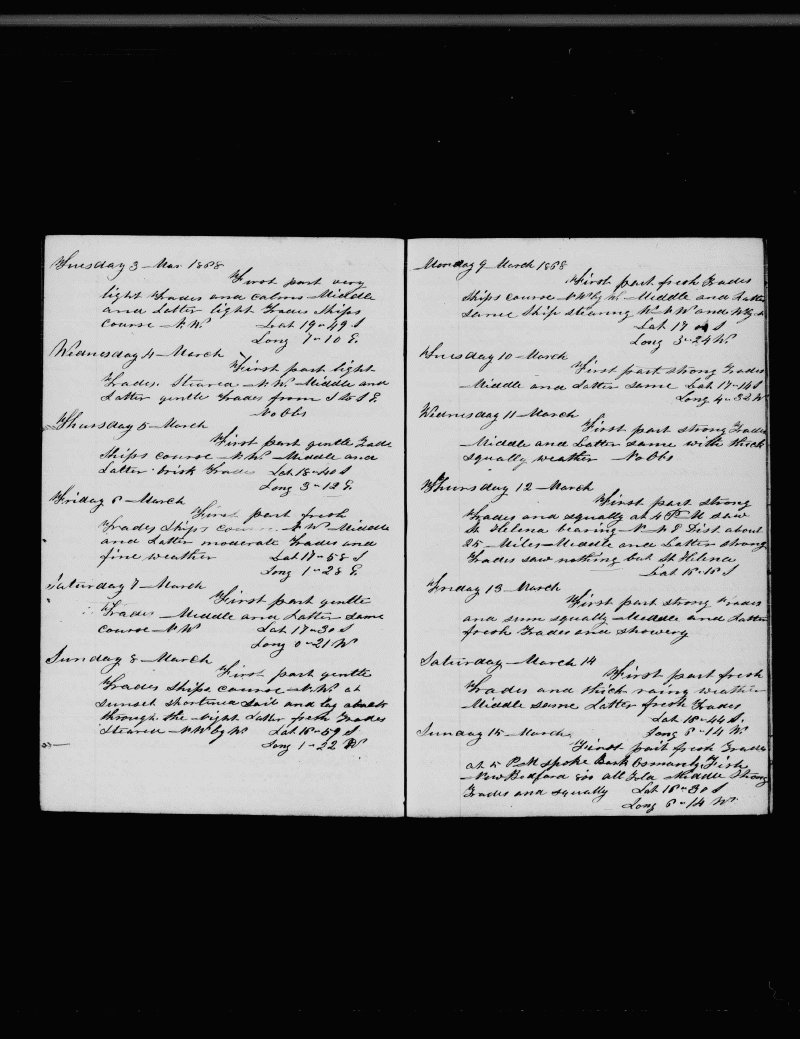 Tuesday 3 - Mar 1868
First part very
light Trades and calms - Middle
and Latter light Trades Ships
course - N.W. Lat 19-49 S
Long 7-10 E.
Wednesday 4 - March
First part light
Trades. Steared - N.W. Middle and
Latter gentle Trades from S to S E
No Obs
Thursday 5 - March
First part gentle Trade
Ships course - N.W. - Middle and
Latter - brisk Trades Lat 18-40 S
Long 3-12 E.
Friday 6 - March
First part fresh
Trades Ships course N.W. Middle
and Latter moderate Trades and
fine weather Lat 17-58 S
Long 1-28 E.
Saturday 7 - March
First part gentle
Trades - Middle and Latter - same
course - N.W. Lat 17-30 S
Long 0-21 W
Sunday 8 - March
First part gentle
Trades Ships course - N.W. at
sunset shortened sail and lay aback
through the night Latter fresh Trades
Steared - N.W. by W. Lat 16-59 S
Long 1-22 W
Monday 9 March 1868
First part fresh Trades
Ships course - N W by W - Middle and Latter
same Ship stearing W N W and W by N
Lat 17 S
Long 3-24 W
Tuesday 10 - March
First part strong Trades
Middle and Latter same Lat 17-14 S
Long 4-32 W
Wednesday 11 - March
First part strong Trades
Middle and Latter same with thick
squally weather No Obs
Thursday 12 - March
First part strong
Trades and squally at 4 P M saw
St Helena bearing - N N E Dist about
25 - Miles - Middle and Latter strong
Trades saw nothing but St Helena
Lat 16-16 S
Friday 13 - March
First part strong Trades
and squally - Middle and Latter
fresh Trades and showery
Saturday - March 14
First part fresh
Trades and thick rainy weather
Middle same Latter fresh Trades
Lat 16-44 S.
Long 6-14 W
Sunday 15 - March
First part fresh Trades
at 5 P.M spoke Bark Osmanly Fish
New Bedford 800 all Told Middle Strong
Trades and squally Lat 16-30 S
Long 6-14 W